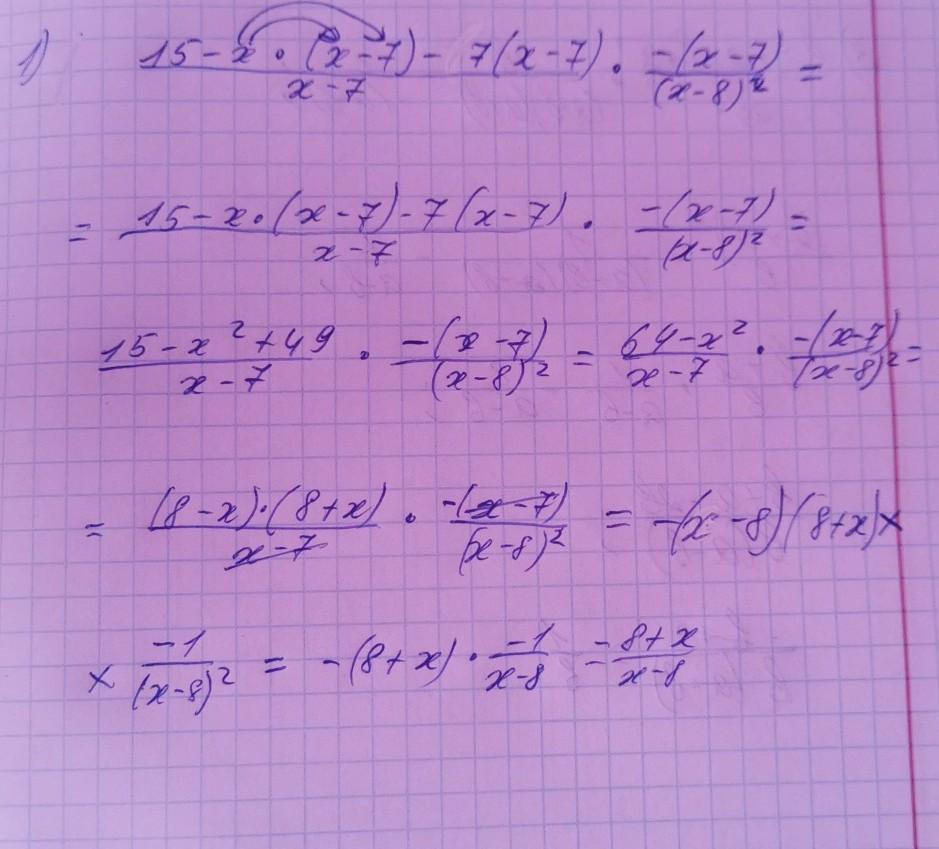 1) (15 - x · (x - 7) - 7(x - 7))/(x - 7) · (-(x - 7))/(x - 8)² =
= (15 - x · (x - 7) - 7(x - 7))/(x - 7) · (-(x - 7))/(x - 8)² =
(15 - x² + 49)/(x - 7) · (-(x - 7))/(x - 8)² = (64 - x²)/(x - 7) · (-(x - 7))/(x - 8)² =
= ((8 - x) · (8 + x))/(x - 7) · (-(x - 7))/(x - 8)² = -(x - 8)(8 + x) ×
× (-1)/(x - 8)² = -(8 + x) · (-1)/(x - 8) = (8 + x)/(x - 8)